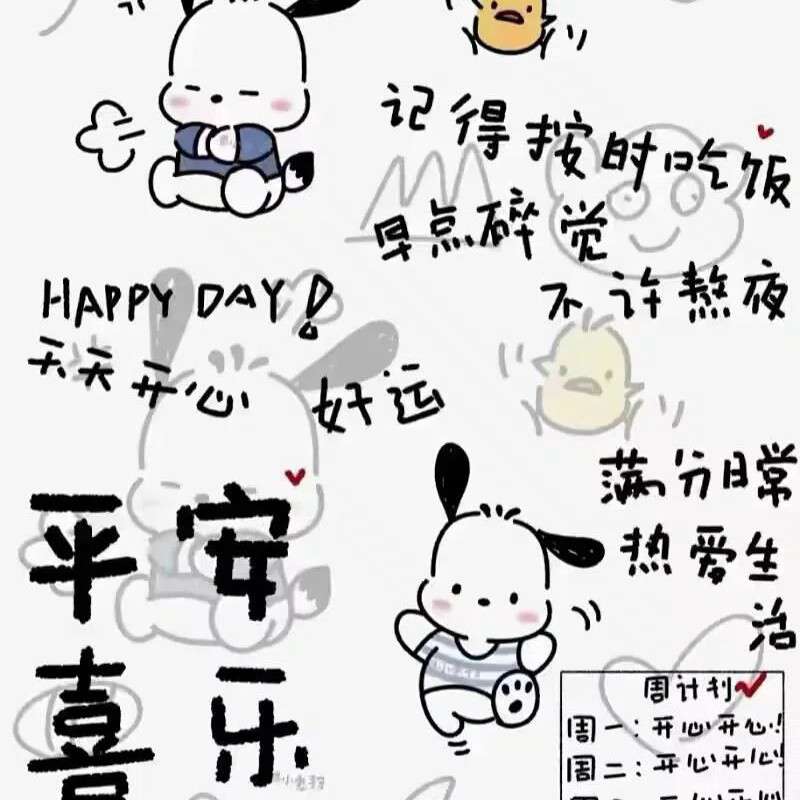 记得按时吃饭
早点碎觉
不许熬夜
HAPPY DAY!
天天开心 好运
满分日常
热爱生
活
平安
喜乐
周计划
周一:开心开心!
周二:开心开心!